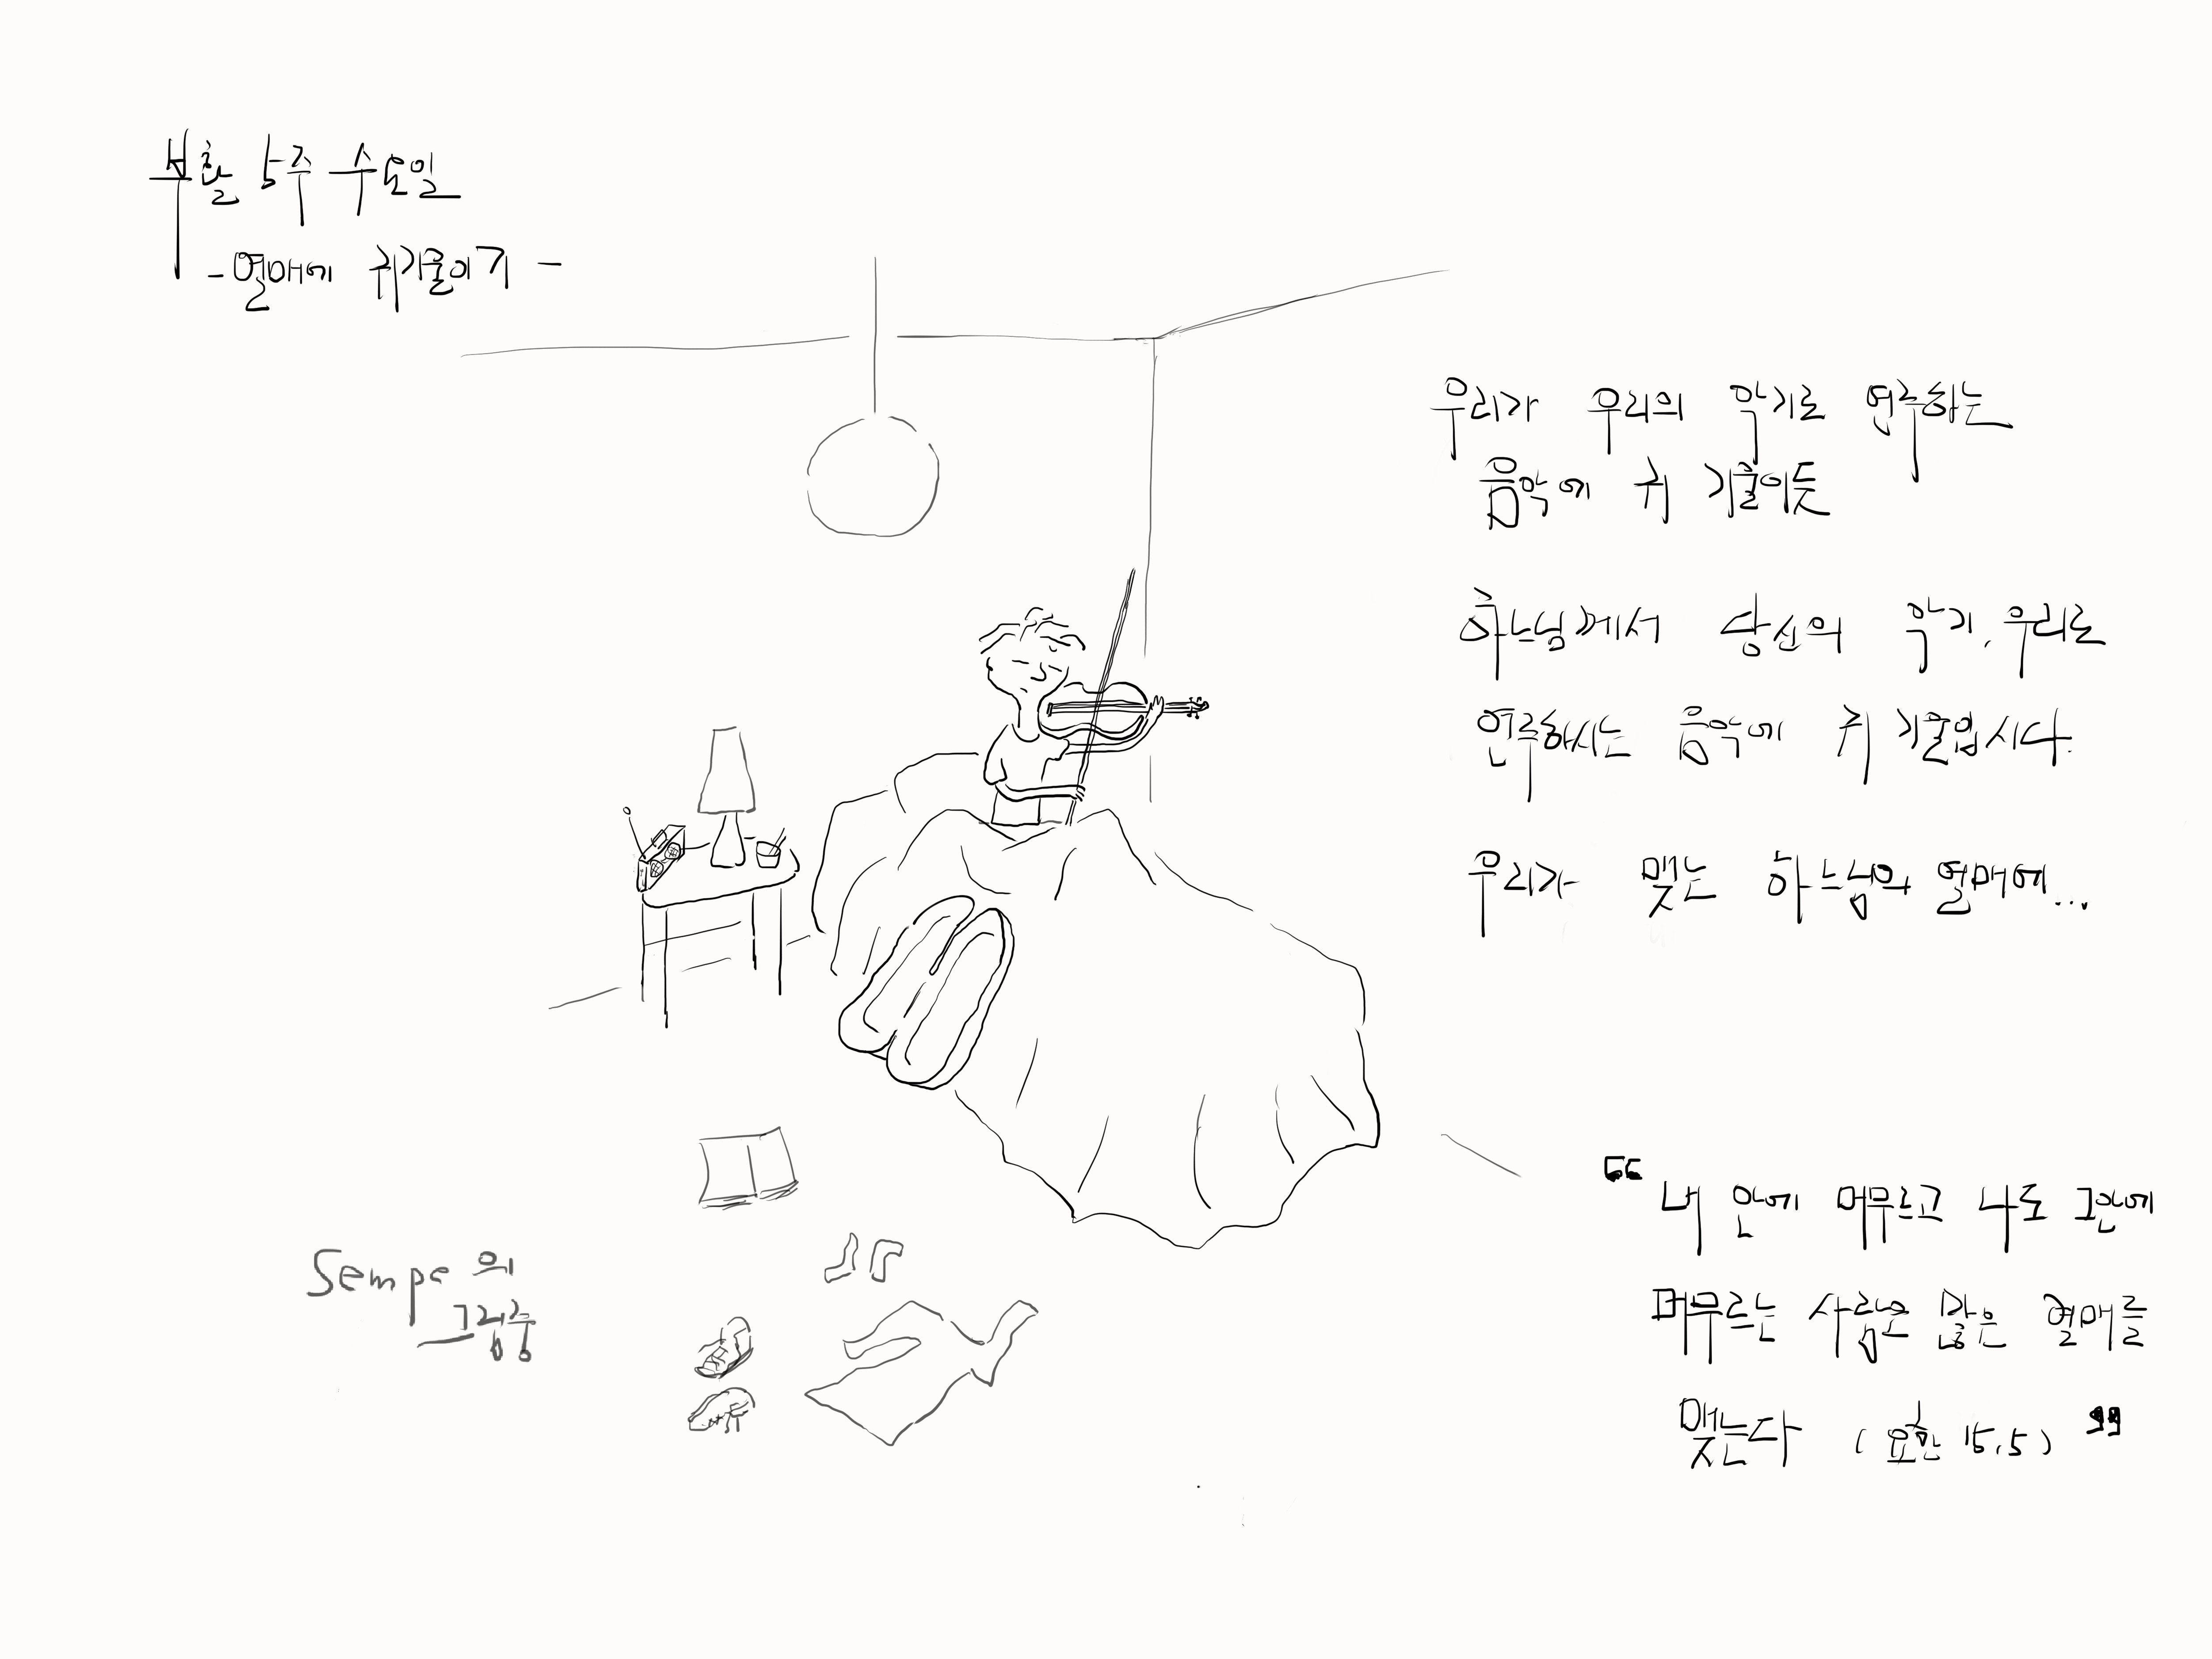 부활 5주 수요일
- 열매에 귀기울이기 -
우리가 우리의 악기로 연주하는
음악에 귀 기울이듯
하느님께서 당신의 악기, 우리로
연주하시는 음악에 귀 기울입시다.
우리가 맺는 하느님의 열매에...
“ 내 안에 머무르고 나도 그안에
머무르는 사람은 많은 열매를
맺는다 (요한 15,5) ”
Sempe의
그림중